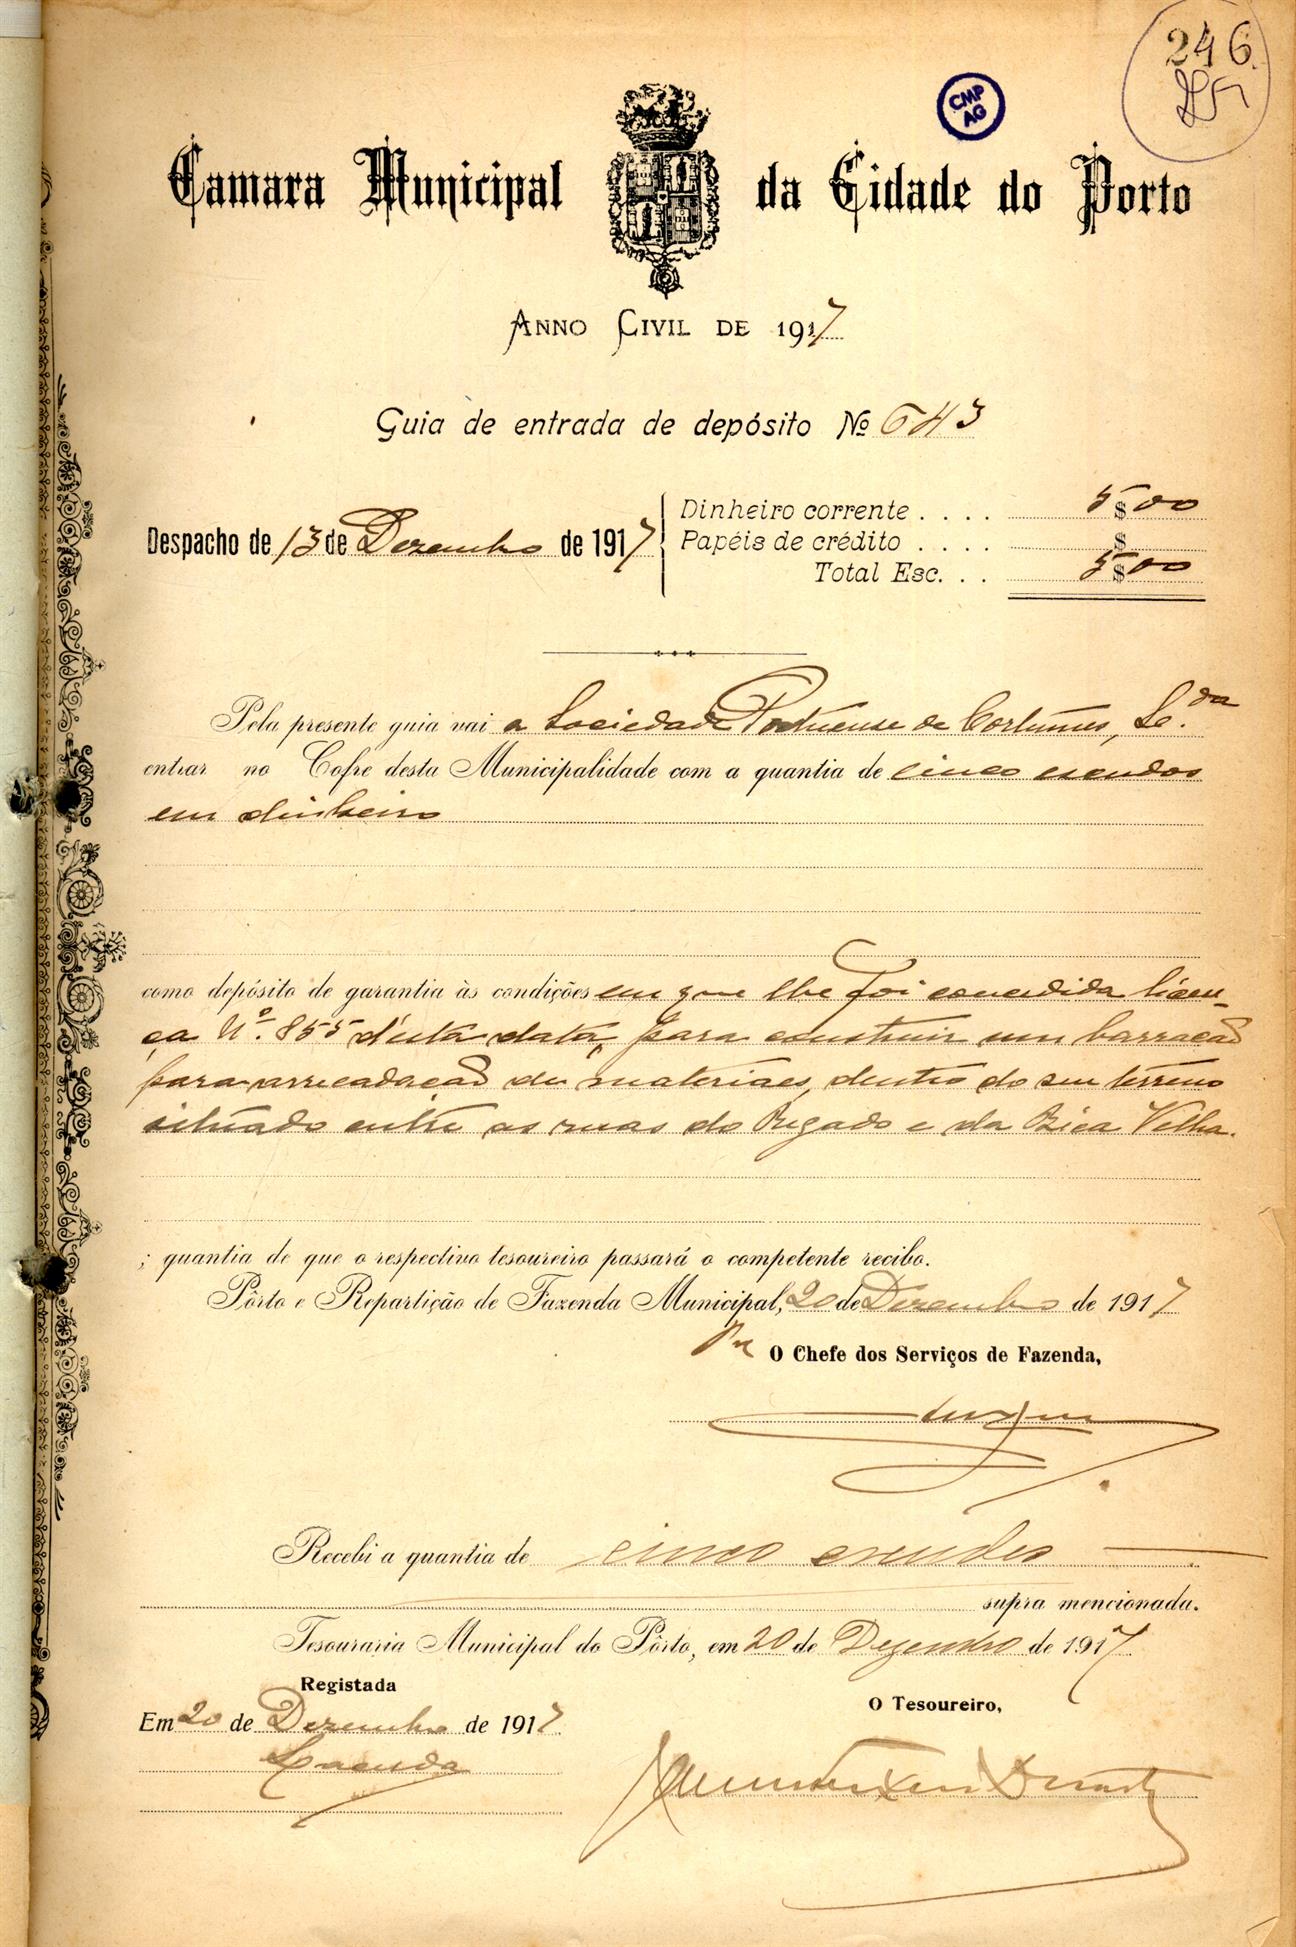 246
CMP
AG
Camara Municipal da Cidade do Porto
Anno Civil de 1917
Guia de entrada de depósito No 643
Despacho de 13 de Dezembro de 1917
Dinheiro corrente . . . . 5$00
Papéis de crédito . . . . $
Total Esc. . . 5$00
Pela presente guia vai a Sociedade Portuense de Cortumes, L.da
entrar no Cofre desta Municipalidade com a quantia de cinco escudos
em dinheiro
como depósito de garantia às condições em que lhe foi concedida licen-
ça Nº. 855 d'esta data, para construir um barracão
para arrecadação de materiaes, dentro do seu terreno
situado entre as ruas do Regado e da Bica Velha.
; quantia de que o respectivo tesoureiro passará o competente recibo.
Pôrto e Repartição de Fazenda Municipal, 20 de Dezembro de 1917
O Chefe dos Serviços de Fazenda,
Recebi a quantia de cinco escudos
supra mencionada.
Tesouraria Municipal do Pôrto, em 20 de Dezembro de 1917
Registada
O Tesoureiro,
Em 20 de Dezembro de 1917